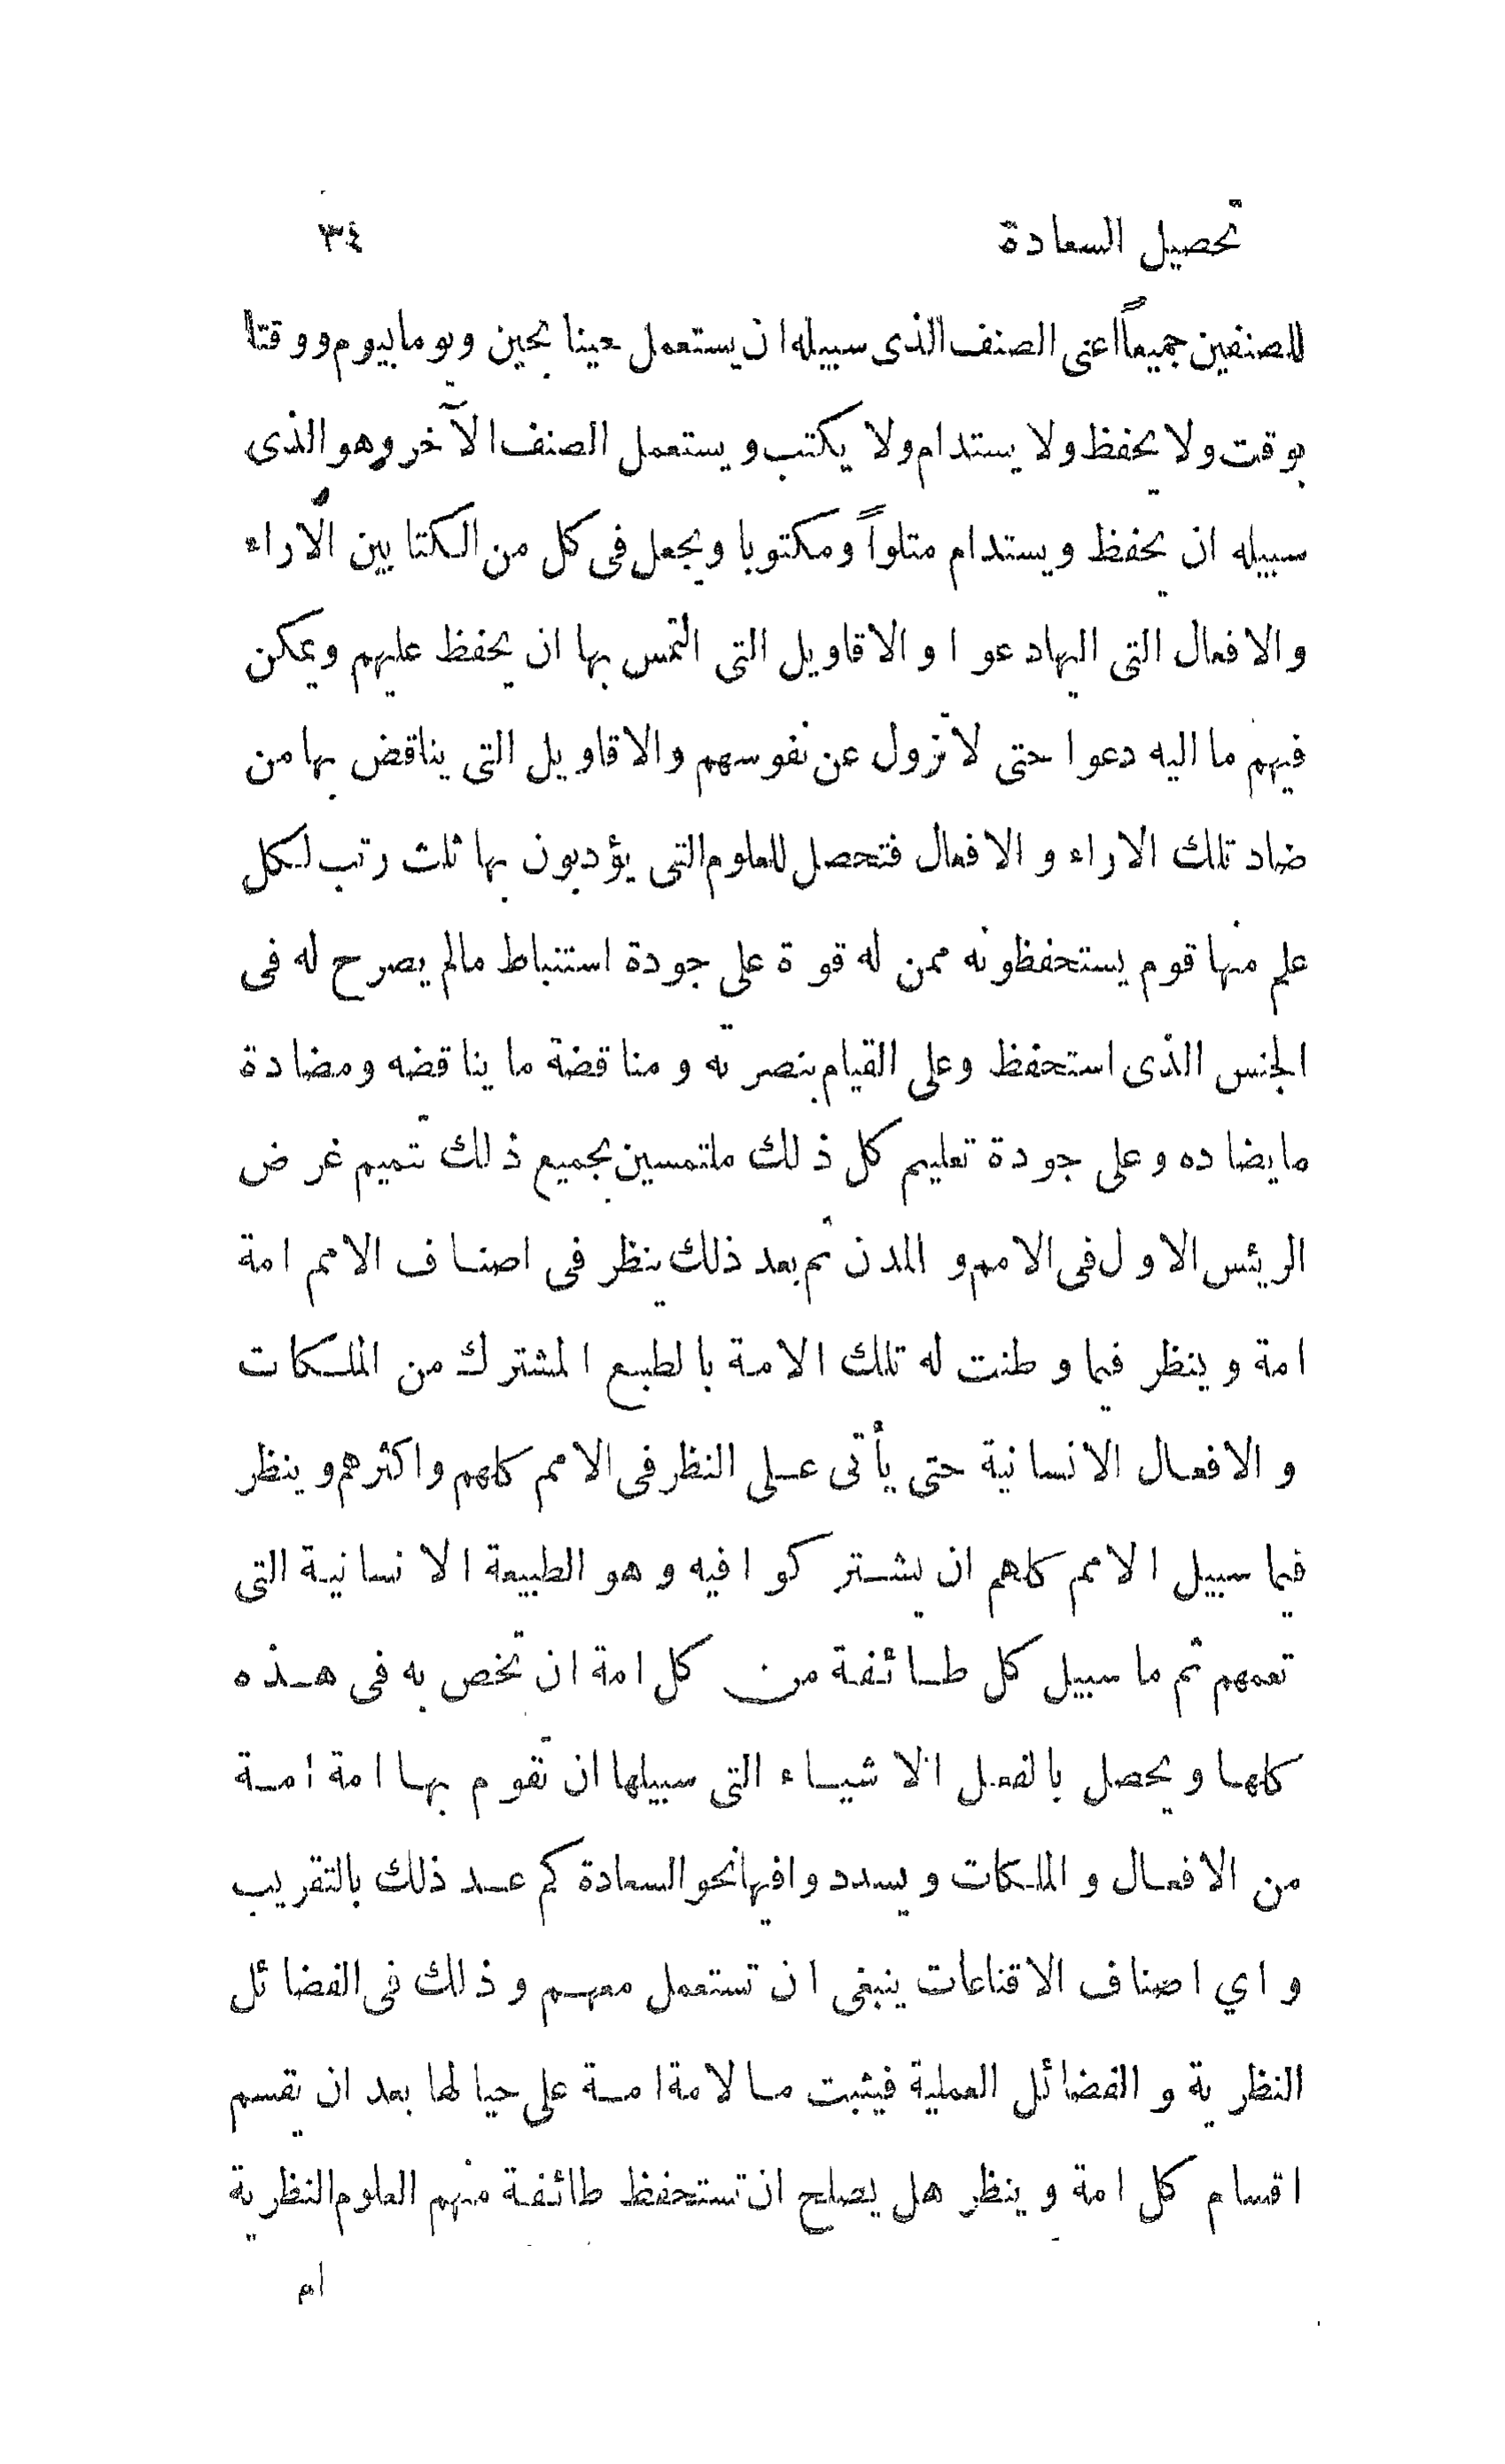 تحصيل السعادة ٣٤
للصنفين جميعاً اعنى الصنف الذى سبيله ان يستعمل حينا بحين ويوما بيوم ووقتا
بوقت ولا يحفظ ولا يستدام ولا يكتب ويستعمل الصنف الآخر وهو الذى
سبيله ان يحفظ ويستدام متلواً ومكتوبا ويجعل فى كل من الكتابين الآراء
والافعال التى اليها دعوا والاقاويل التى التمس بها ان يحفظ عليهم ويمكن
فيهم ما اليه دعوا حتى لا تزول عن نفوسهم والاقاويل التى يناقض بها من
ضاد تلك الاراء والافعال فتحصل للعلوم التى يؤدبون بها ثلث رتب لكل
علم منها قوم يستحفظونه ممن له قوة على جودة استنباط مالم يصرح له فى
الجنس الذى استحفظ وعلى القيام بنصرته ومناقضة ما يناقضه ومضادة
ما يضاده وعلى جودة تعليم كل ذلك ملتمسين بجميع ذلك تتميم غرض
الرئيس الاول فى الامم والمدن ثم بعد ذلك ينظر فى اصناف الامم امة
امة وينظر فيما وطنت له تلك الامة بالطبع المشترك من الملكات
والافعال الانسانية حتى يأتى على النظر فى الامم كلهم واكثرهم وينظر
فيما سبيل الامم كلهم ان يشتركوا فيه وهو الطبيعة الانسانية التى
تعمهم ثم ما سبيل كل طائفة من كل امة ان تخص به فى هذه
كلها ويحصل بالفعل الاشياء التى سبيلها ان تقوم بها امة امة
من الافعال والملكات ويسددوا فيها نحو السعادة كم عدد ذلك بالتقريب
واي اصناف الاقناعات ينبغى ان تستعمل معهم وذلك فى الفضائل
النظرية والفضائل العملية فيثبت ما لامة امة على حيالها بعد ان يقسم
اقسام كل امة وينظر هل يصلح ان تستحفظ طائفة منهم العلوم النظرية
ام